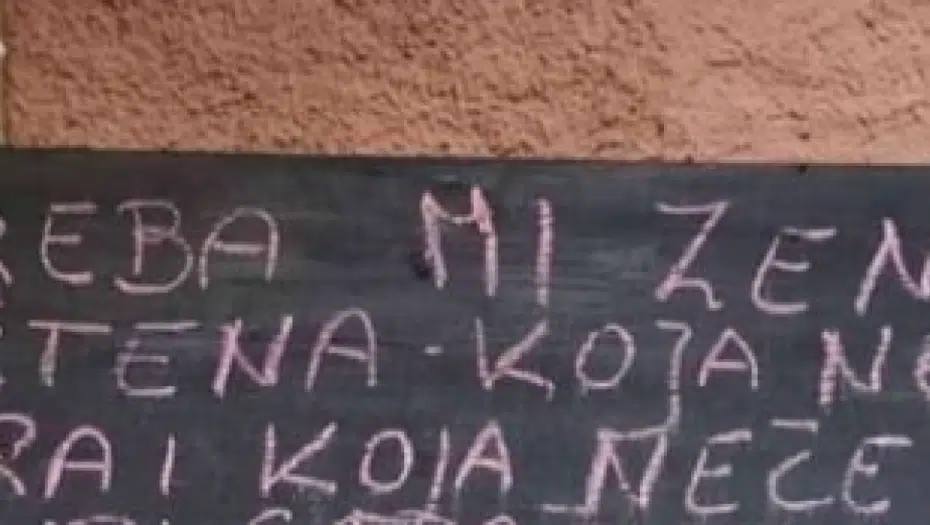 REBA MI ZEN
TENA-KOJA NE
RA I KOJA NEČE